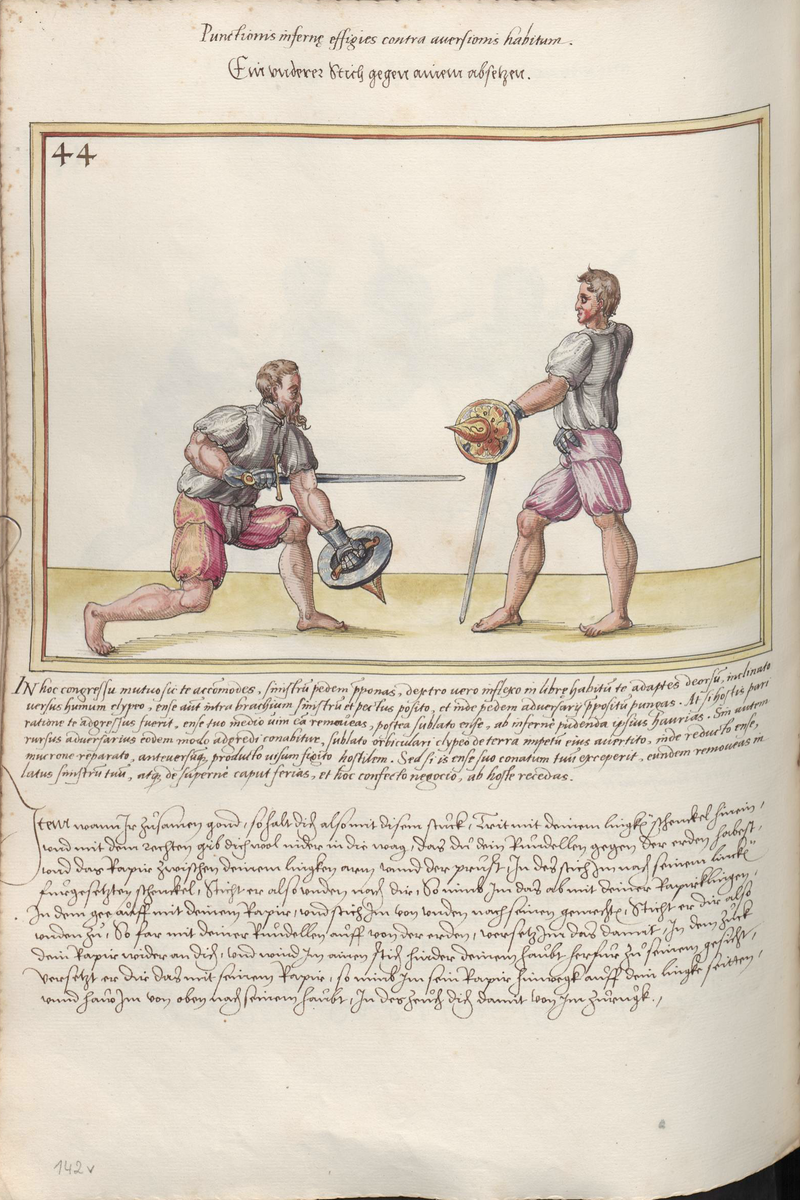 Punctionis infernę effigies contra auersionis habitum.
Ein vnderer Stich gegen ainem absetzen.
44
IN hoc congressu mutuo sic te accomodes, sinistrũ pedem pponas, dextro vero inflexo in librę habitũ te adaptes deorsũ, inclinato
versus humum clypeo, ense aũt intra brachium sinistrũ et pectus posito, et inde pedem aduersarÿ prositũ pungas. At si hostis pari
ratione te adgressus fuerit, ense tuo medio vim ea remoueas, postea sublato ense, ab infernè pudenda ipsius haurias. Sin autem
rursus aduersarius eodem modo adgredi conabitur, sublato orbiculari clypeo de terra impetũ eius auertito, inde reducto ense,
mucrone reparato, anteuersũq; producto uisum figito hostilem. Sed si is ense suo conatum tuũ exceperit, eundem remoueas in
latus sinistrũ tuũ, atq; de supernè caput ferias, et hoc confecto negocio, ab hoste recedas.
Item wann Ir zusamen gond, so halt dich also mit disem stuck, Trit mit deinem lingkẽ schenckel hinein,
vnd mit dem rechten gib dich wol nider in die wag, das du dein Rundellen gegen der erden habest,
vnd das Rapir zwischen deinem lingken arm vnnd der prust, In des stich Im nach seinem linckẽ
furgesetzten schenckel, Sticht er also vnden nach dir, So nimb Im das ab mit deiner Rapirklingen,
In dem gee auff mit deinem Rapir, vnd stich Im von vnden nach seinen gemechtẽ, Sticht er dir also
vnden zu, So far mit deiner Rundellen auff von der erden, versetz Im das damit, In dem zuck
dein Rapir wider an dich, vnd wind Im ainen stich hinder deinem haubt herfur zu seinem gesicht,
versetzt er dir das mit seinem Rapir, so nimb Im sein Rapir hinwegk auff dein lingke seitten,
vnnd haw Im von oben nach seinem haubt, In des zeuch dich damit von Im zurugk.
142v